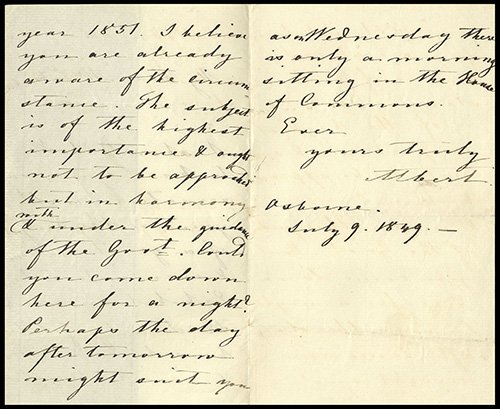 year 1851. I believe
you are already
aware of the circum
stance. The subject
is of the highest
importance & ought
not to be approached
but in harmony
with
& under the guidance
of the Govt. Could
you come down
here for a night?
Perhaps the day
after tomorrow
might suit you
as on Wednesday there
is only a morning
sitting in the House
of Commons.
Ever
yours truly
Albert
Osborne.
July 9. 1849. —